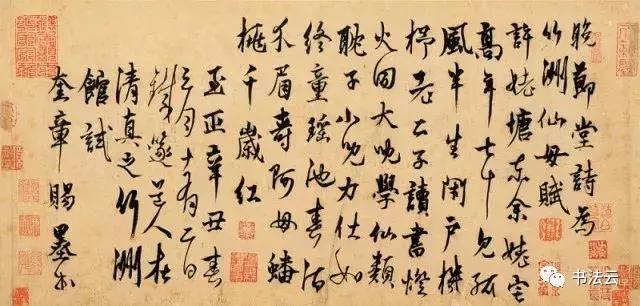 晚節堂詩為
竹洲仙母賦
許姥塘東余姥宅
高年七十見孤
風半生閉戶機
杼老二子讀書燈
火同大兒學仙類
耽子小兒力仕如
終童瑤池春酒
介眉壽阿母蟠
桃千歲紅
至正辛丑春
三月十有二日
鐵篴道人在
清真之竹洲
館試
奎章賜墨書
书法云